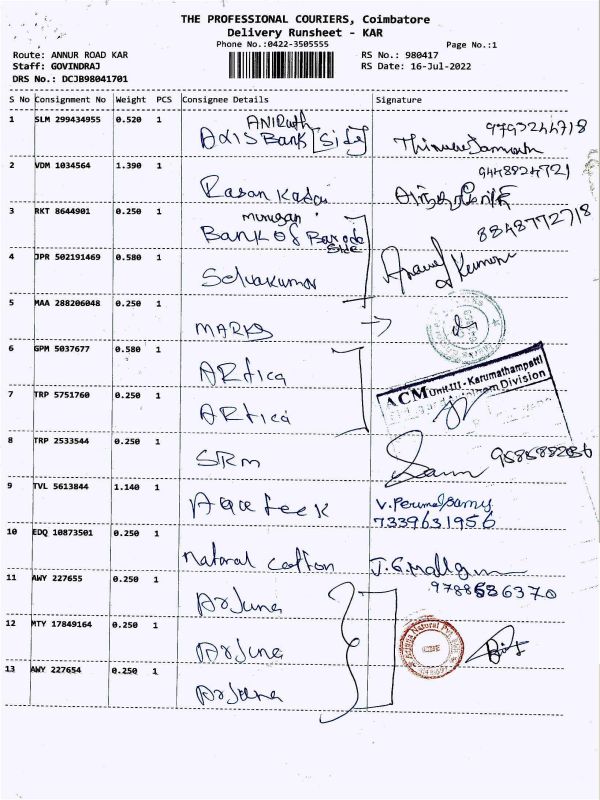 THE PROFESSIONAL COURIERS, Coimbatore
Delivery Runsheet - KAR
Phone No.:0422-3505555
Page No.:1
Route: ANNUR ROAD KAR
RS No.: 980417
Staff: GOVINDRAJ
RS Date: 16-Jul-2022
DRS No.: DCJB98041701
S No Consignment No Weight PCS Consignee Details Signature
ANIRuth
1 SLM 299434955 0.520 1 AxisBank [Side]
9793244718
2 VDM 1034564 1.390 1 Rasan Kadai
9448824721
murugan
3 RKT 8644901 0.250 1 Bank Of Baroda
Side
8848772718
4 JPR 502191469 0.580 1 Selvakumar
5 MAA 288206048 0.250 1 MARKS
6 GPM 5037677 0.580 1 ARtica
ACM Unit-III - Karumathampatti
7 TRP 5751760 0.250 1 ARtica
8 TRP 2533544 0.250 1 SRM
9 TVL 5613844 1.140 1
V. Perumalsamy
7339631956
10 EDQ 10873501 0.250 1 Natural Cotton
11 AWY 227655 0.250 1 Arjuna
12 MTY 17849164 0.250 1 Arjuna
13 AWY 227654 0.250 1 Arjuna